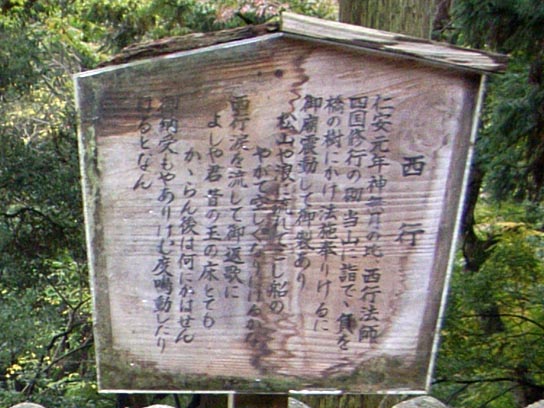 西行
仁安元年神無月の比 西行法師
四国修行の砌当山に詣で、負を
橋の樹にかけ法施奉りけるに
御廟震動して御製あり
松山や浪に流れてこし船の
やかて空しくなりにけるかな
西行涙を流して御返歌に
よしや君昔の玉の床とても
かゝらん後は何にかはせん
御納受もやありけむ度々鳴動したり
けるとなん